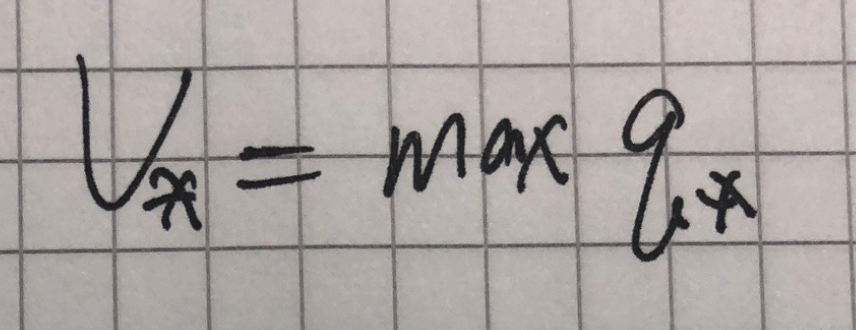 V* = max q*